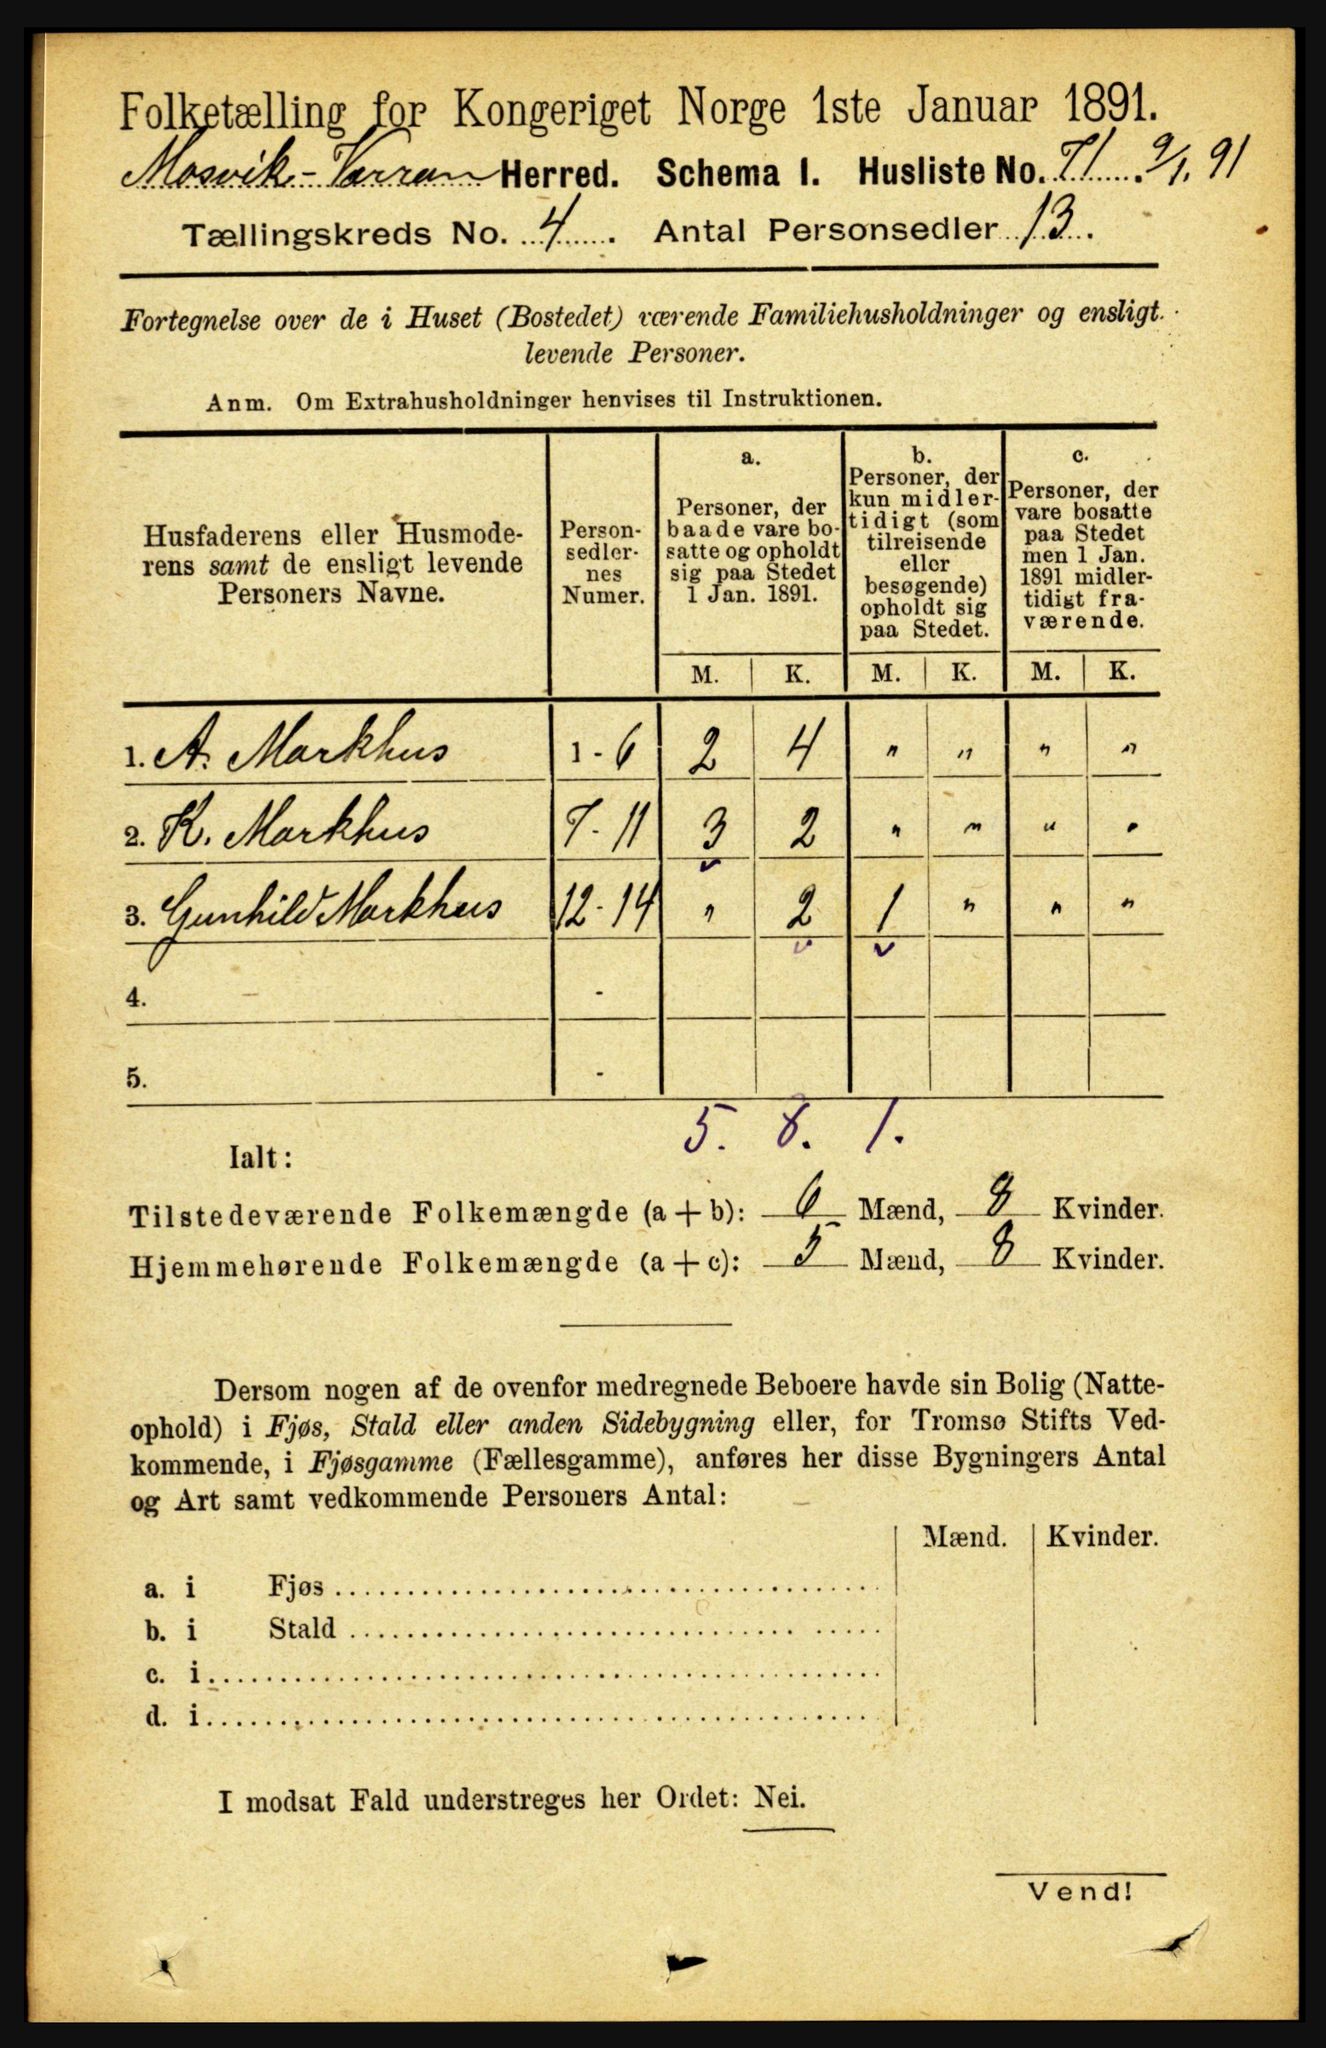 Folketælling for Kongeriget Norge 1ste Januar 1891.
Mosvik-Varran Herred. Schema I. Husliste No. 71. 9/1. 91
Tællingskreds No. 4. Antal Personsedler 13.
Fortegnelse over de i Huset (Bostedet) værende Familiehusholdninger og ensligt
levende Personer.
Anm. Om Extrahusholdninger henvises til Instruktionen.
Husfaderens eller Husmode-
rens samt de ensligt levende
Personers Navne.
Person-
sedler-
nes
Numer.
a.
Personer, der
baade vare bo-
satte og opholdt
sig paa Stedet
1 Jan. 1891.
b.
Personer, der
kun midler-
tidigt (som
tilreisende
eller
besøgende)
opholdt sig
paa Stedet.
c.
Personer, der
vare bosatte
paa Stedet
men 1 Jan.
1891 midler-
tidigt fra-
værende.
M. K. M. K. M. K.
1. A. Markhus 1 - 6 2 4 " " " "
2. K. Markhus 7 - 11 3 2 " " " "
3. Gunhild Markhus 12 - 14 " 2 1 " " "
4. -
5. -
5. 8. 1.
Ialt:
Tilstedeværende Folkemængde (a + b): 6 Mænd, 8 Kvinder.
Hjemmehørende Folkemængde (a + c): 5 Mænd, 8 Kvinder.
Dersom nogen af de ovenfor medregnede Beboere havde sin Bolig (Natte-
ophold) i Fjøs, Stald eller anden Sidebygning eller, for Tromsø Stifts Ved-
kommende, i Fjøsgamme (Fællesgamme), anføres her disse Bygningers Antal
og Art samt vedkommende Personers Antal:
Mænd. Kvinder.
a. i Fjøs
b. i Stald
c. i
d. i
I modsat Fald understreges her Ordet: Nei.
Vend!